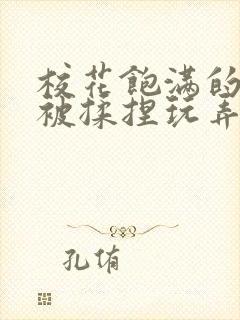 校花饱满的
被揉捏玩弄
孔侑